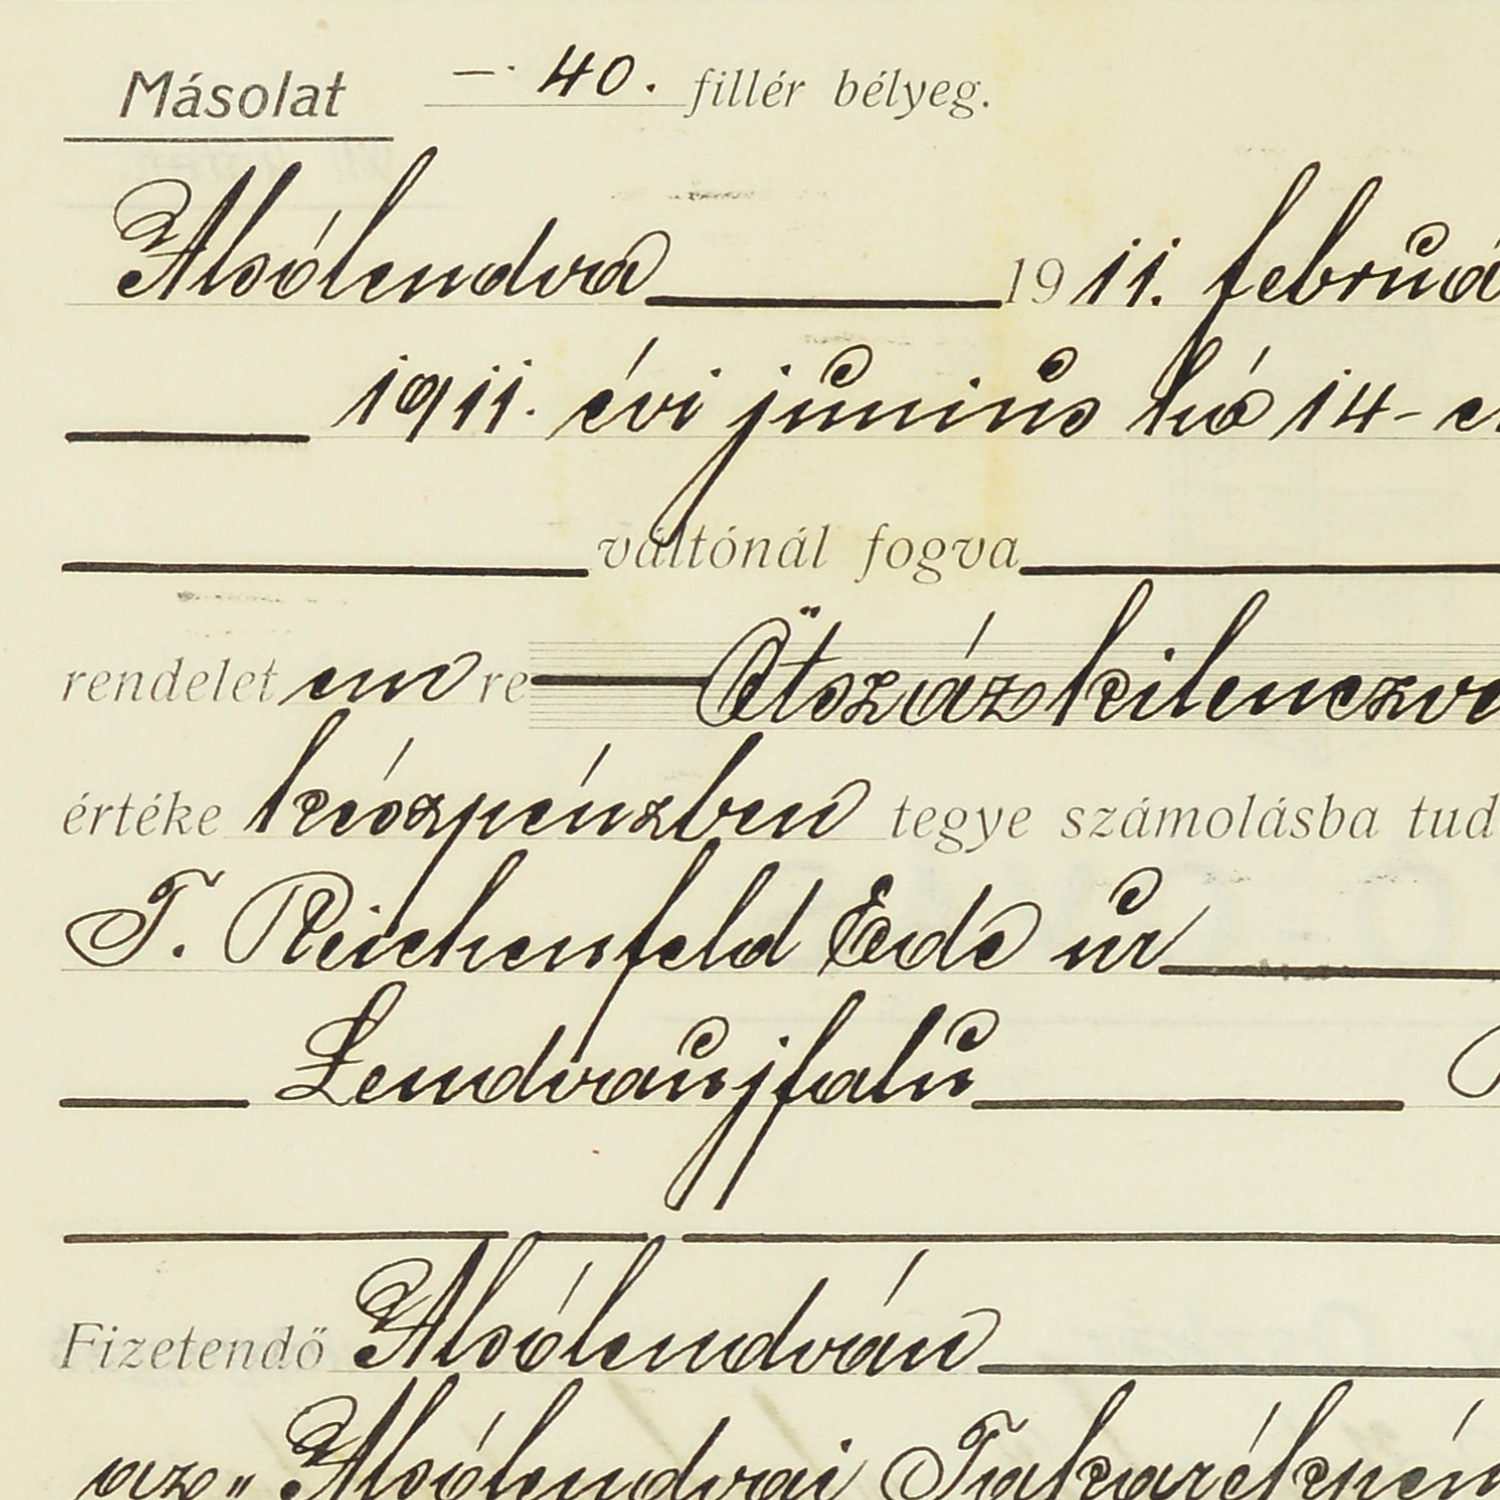 Másolat —· 40. fillér bélyeg.
Alsólendva 1911. februá
1911. évi június hó 14-e
váltónál fogva
rendelet em re Ötszázkilenczve
értéke készpénzben tegye számolásba tud
T. Reichenfeld Ede úr
Lendvaujfalu
Fizetendő Alsólendván
az „Alsólendvai Takarékpén